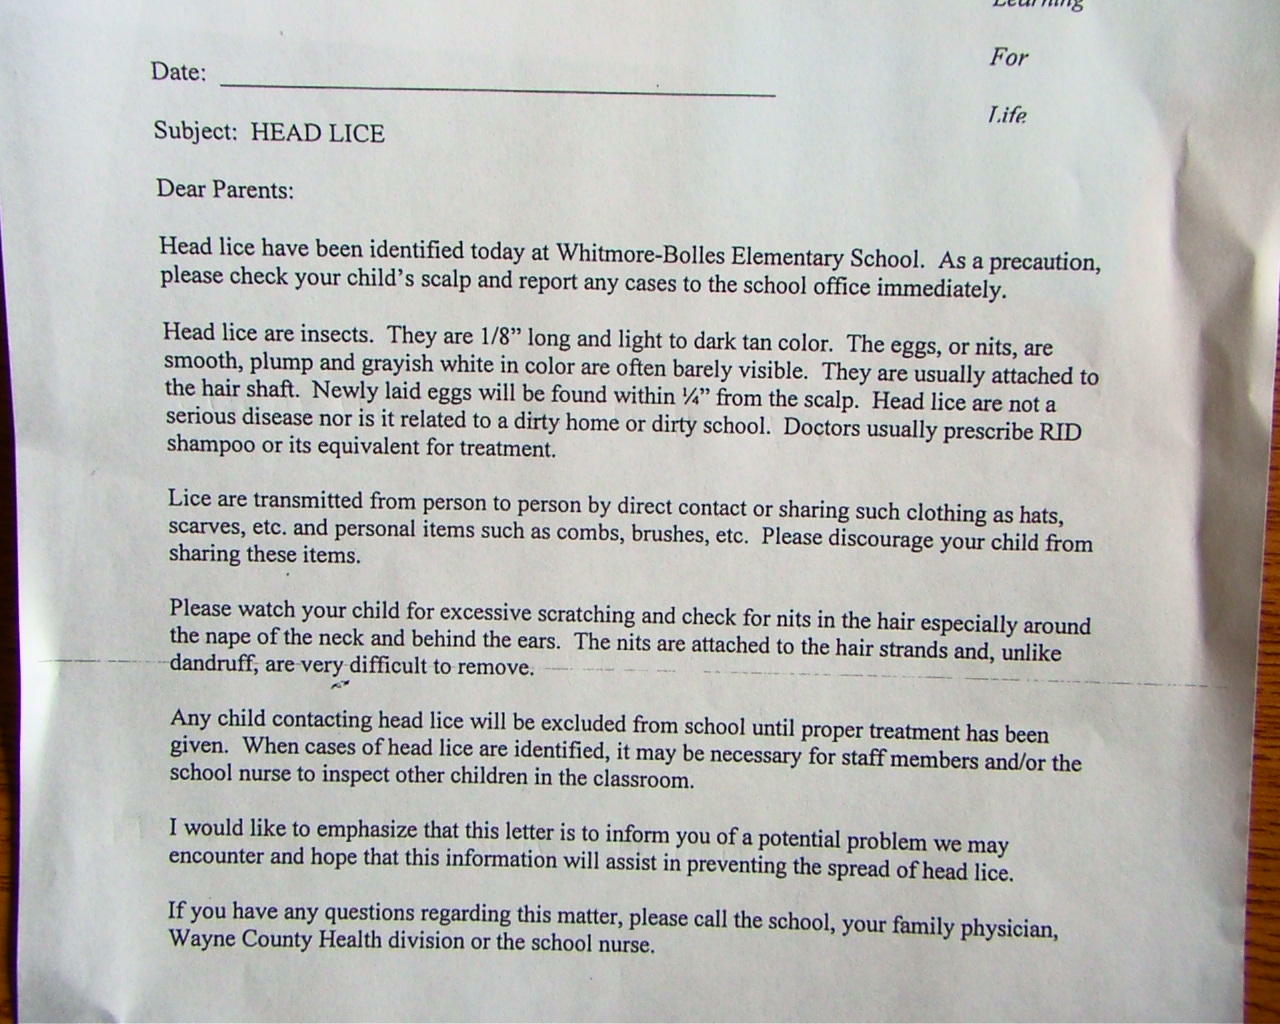 Learning
For
Life
Date:
Subject: HEAD LICE
Dear Parents:
Head lice have been identified today at Whitmore-Bolles Elementary School. As a precaution,
please check your child's scalp and report any cases to the school office immediately.
Head lice are insects. They are 1/8” long and light to dark tan color. The eggs, or nits, are
smooth, plump and grayish white in color are often barely visible. They are usually attached to
the hair shaft. Newly laid eggs will be found within ¼” from the scalp. Head lice are not a
serious disease nor is it related to a dirty home or dirty school. Doctors usually prescribe RID
shampoo or its equivalent for treatment.
Lice are transmitted from person to person by direct contact or sharing such clothing as hats,
scarves, etc. and personal items such as combs, brushes, etc. Please discourage your child from
sharing these items.
Please watch your child for excessive scratching and check for nits in the hair especially around
the nape of the neck and behind the ears. The nits are attached to the hair strands and, unlike
dandruff, are very difficult to remove.
Any child contacting head lice will be excluded from school until proper treatment has been
given. When cases of head lice are identified, it may be necessary for staff members and/or the
school nurse to inspect other children in the classroom.
I would like to emphasize that this letter is to inform you of a potential problem we may
encounter and hope that this information will assist in preventing the spread of head lice.
If you have any questions regarding this matter, please call the school, your family physician,
Wayne County Health division or the school nurse.